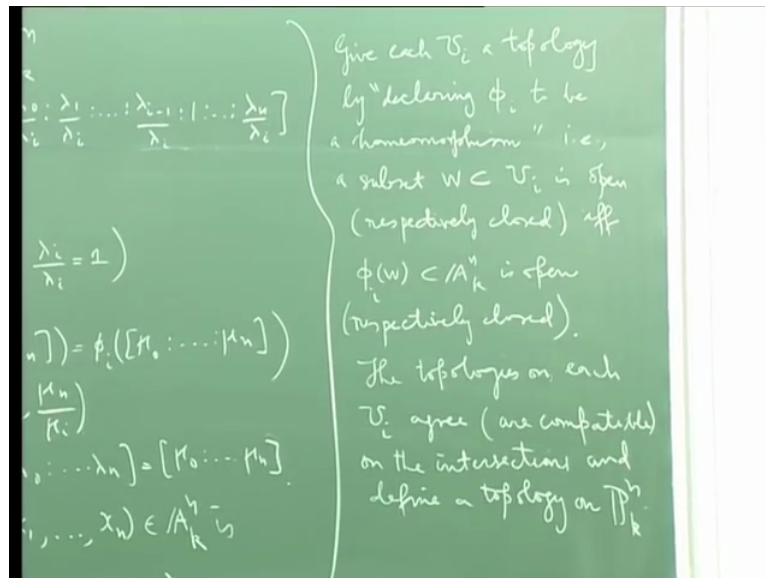 n
k
λ₀/λᵢ : λ₁/λᵢ : .... : λᵢ₋₁/λᵢ : 1 : ... : λₙ/λᵢ]
λᵢ/λᵢ = 1)
ₙ]) = ϕᵢ([μ₀ : ..... : μₙ])
, μₙ/μᵢ)
₀ : ..... λₙ] = [μ₀ : .... μₙ].
₁, ..., xₙ) ∈ /Aⁿₖ is
Give each Uᵢ a topology
by "declaring ϕᵢ to be
a homeomorphism" i.e.,
a subset W ⊂ Uᵢ is open
(respectively closed) iff
ϕᵢ(W) ⊂ /Aⁿₖ is open
(respectively closed).
The topologies on each
Uᵢ agree (are compatible)
on the intersections and
define a topology on ℙⁿₖ.